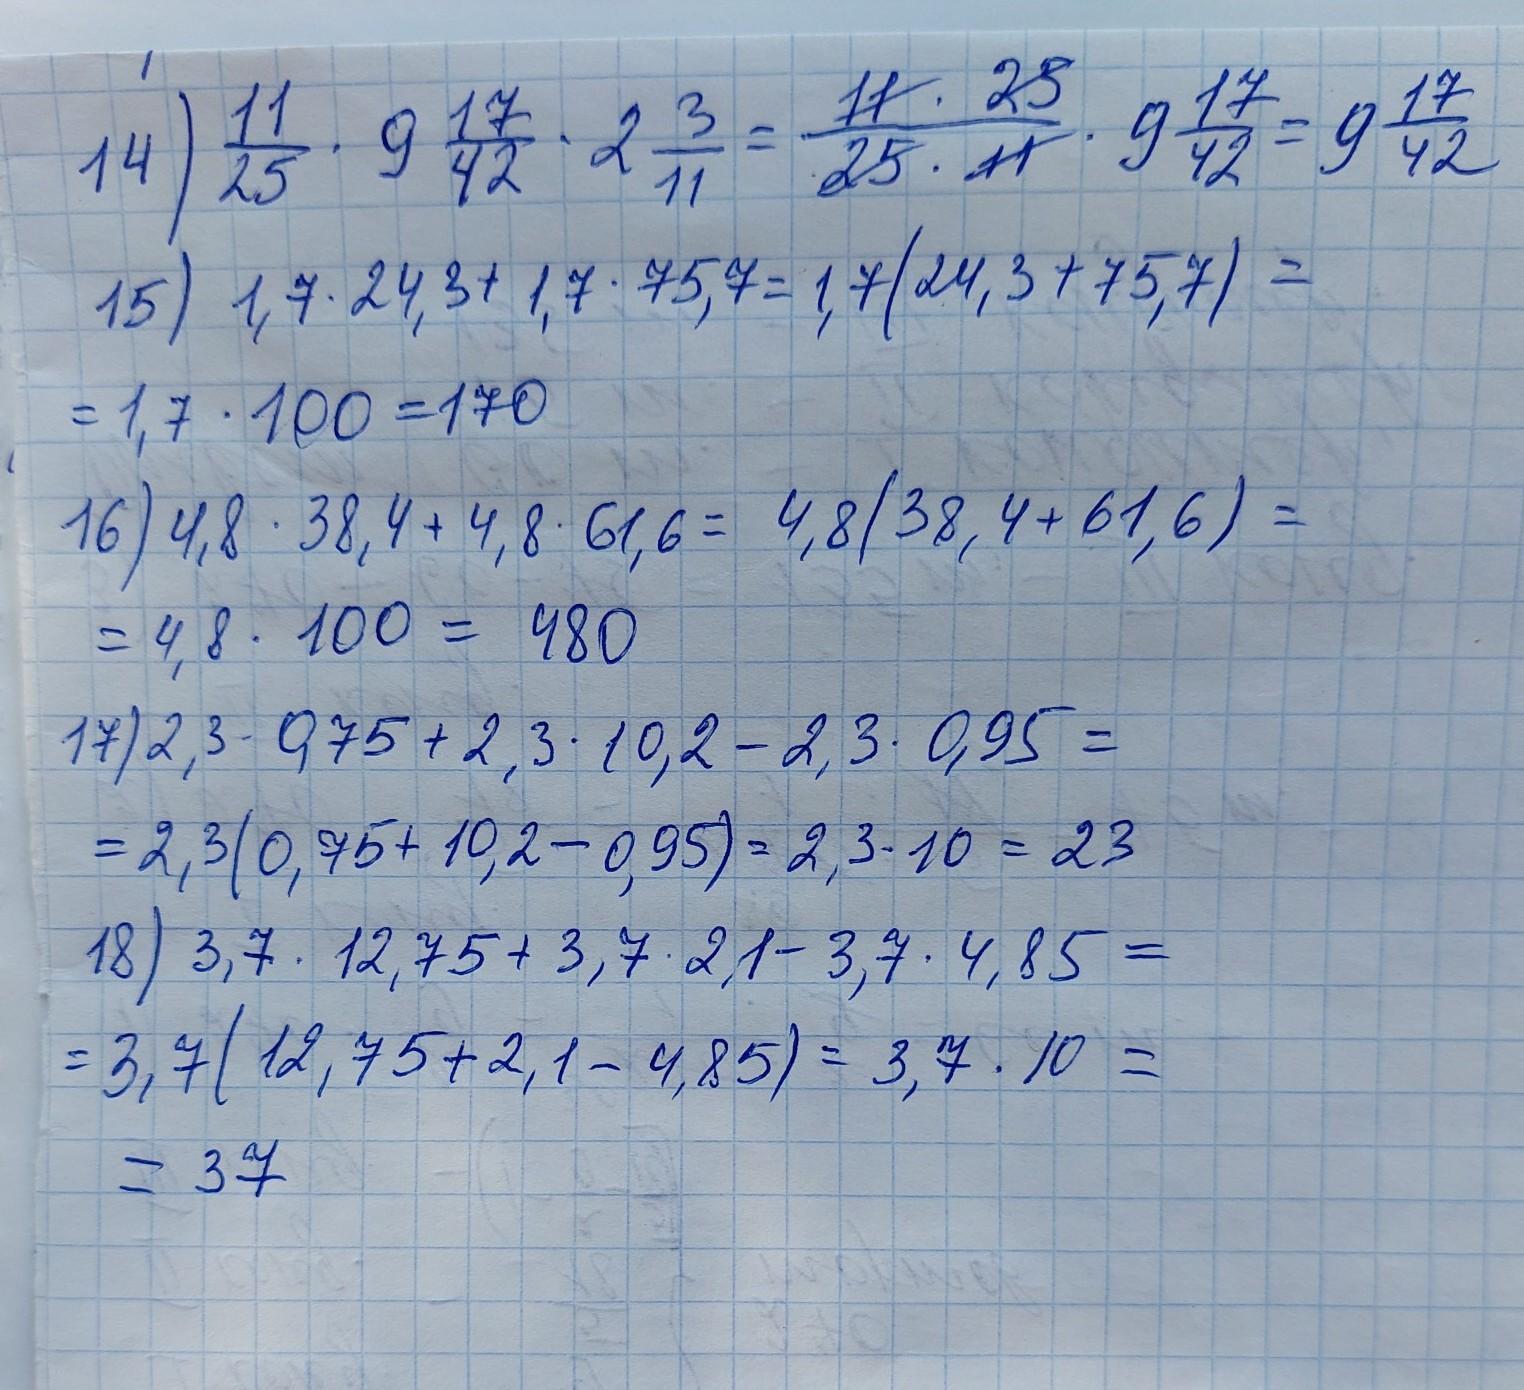 14) 11/25 · 9 17/42 · 2 3/11 = 11 · 25/25 · 11 · 9 17/42 = 9 17/42
15) 1,7 · 24,3 + 1,7 · 75,7 = 1,7(24,3 + 75,7) =
= 1,7 · 100 = 170
16) 4,8 · 38,4 + 4,8 · 61,6 = 4,8(38,4 + 61,6) =
= 4,8 · 100 = 480
17) 2,3 · 0,75 + 2,3 · 10,2 - 2,3 · 0,95 =
= 2,3(0,75 + 10,2 - 0,95) = 2,3 · 10 = 23
18) 3,7 · 12,75 + 3,7 · 2,1 - 3,7 · 4,85 =
= 3,7(12,75 + 2,1 - 4,85) = 3,7 · 10 =
= 37